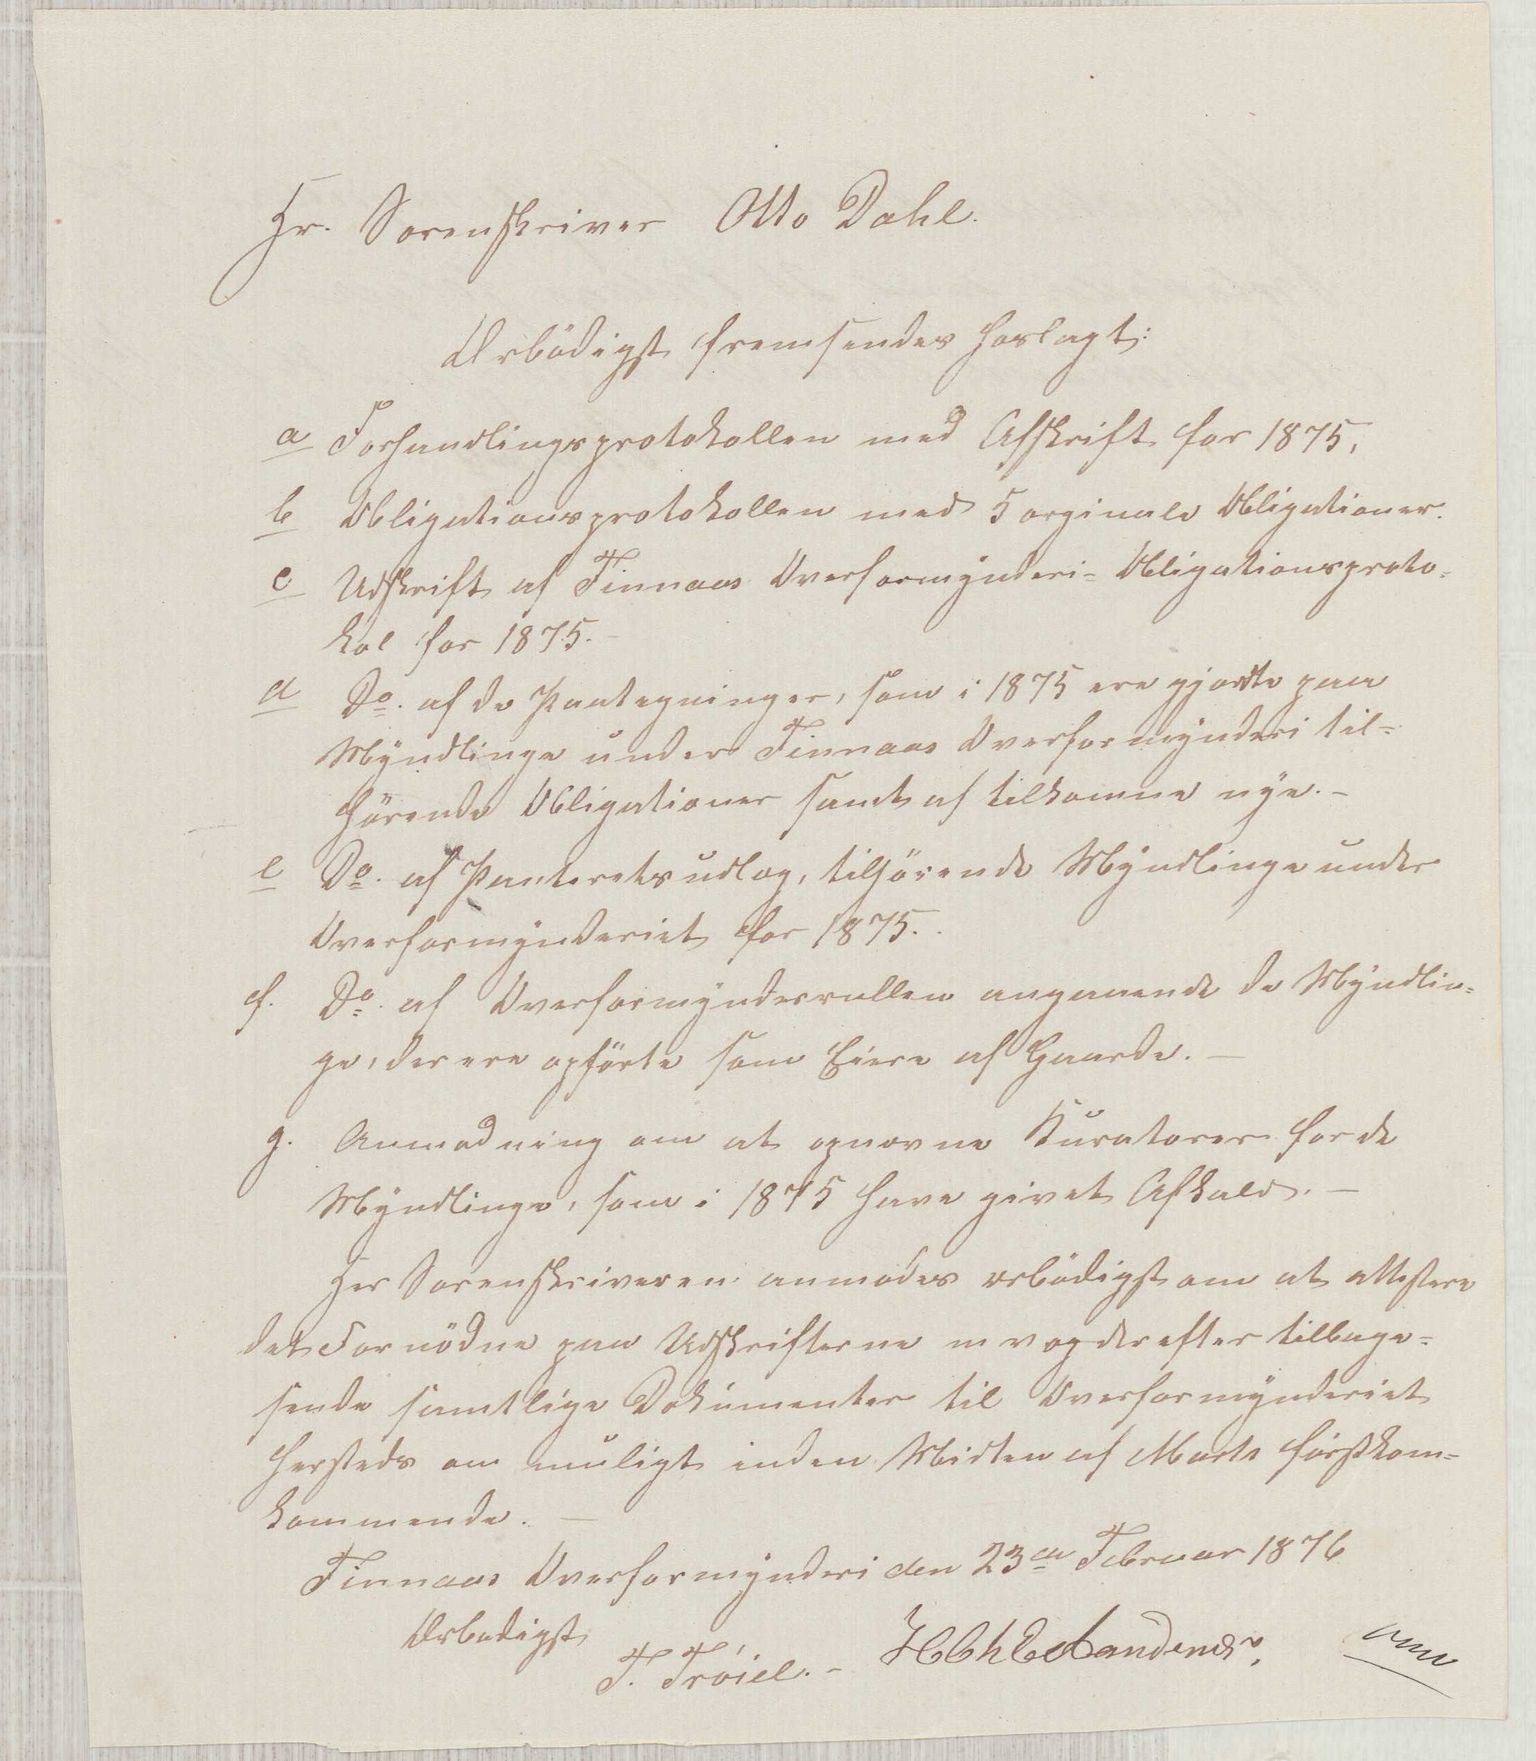 Hr. Sorenskriver Otto Dahl.
Ærbödigst fremsendes hoslagt:
a Forhandlingsprotokollen med Afskrift for 1875,
b Obligationsprotokollen med 5 orginale Obligationer.
c Udskrift af Finnaas Overformynderi= Obligationsproto=
kol for 1875.-
d Do. af de Paategninger, som i 1875 ere gjordte paa
Myndlinge under Finnaas Overformynderi til=
hörende Obligationer samt af tilkomne nye.-
e Do. af Panteretsudlæg, tilhörende Myndlinge under
Overformynderiet for 1875.
f. Do. af Overformynderrullen angaaende de Myndlin=
ge, der ere opförte som Eiere af Gaarde.-
g. Anmodning om at opnævne Kuratorer for de
Myndlinge, som i 1875 have givet Afkald.-
Her Sorenskriveren anmodes ærbödigst om at attestere
det Fornödne paa Udskrifterne m v og derefter tilbage=
sende samtlige Dokumenter til Overformynderiet
hersteds om muligt inden Midten af Marts förstkom=
kommende.-
Finnaas Overformynderi den 23de Februar 1876
Ærbödigst
T. Tröiel.-